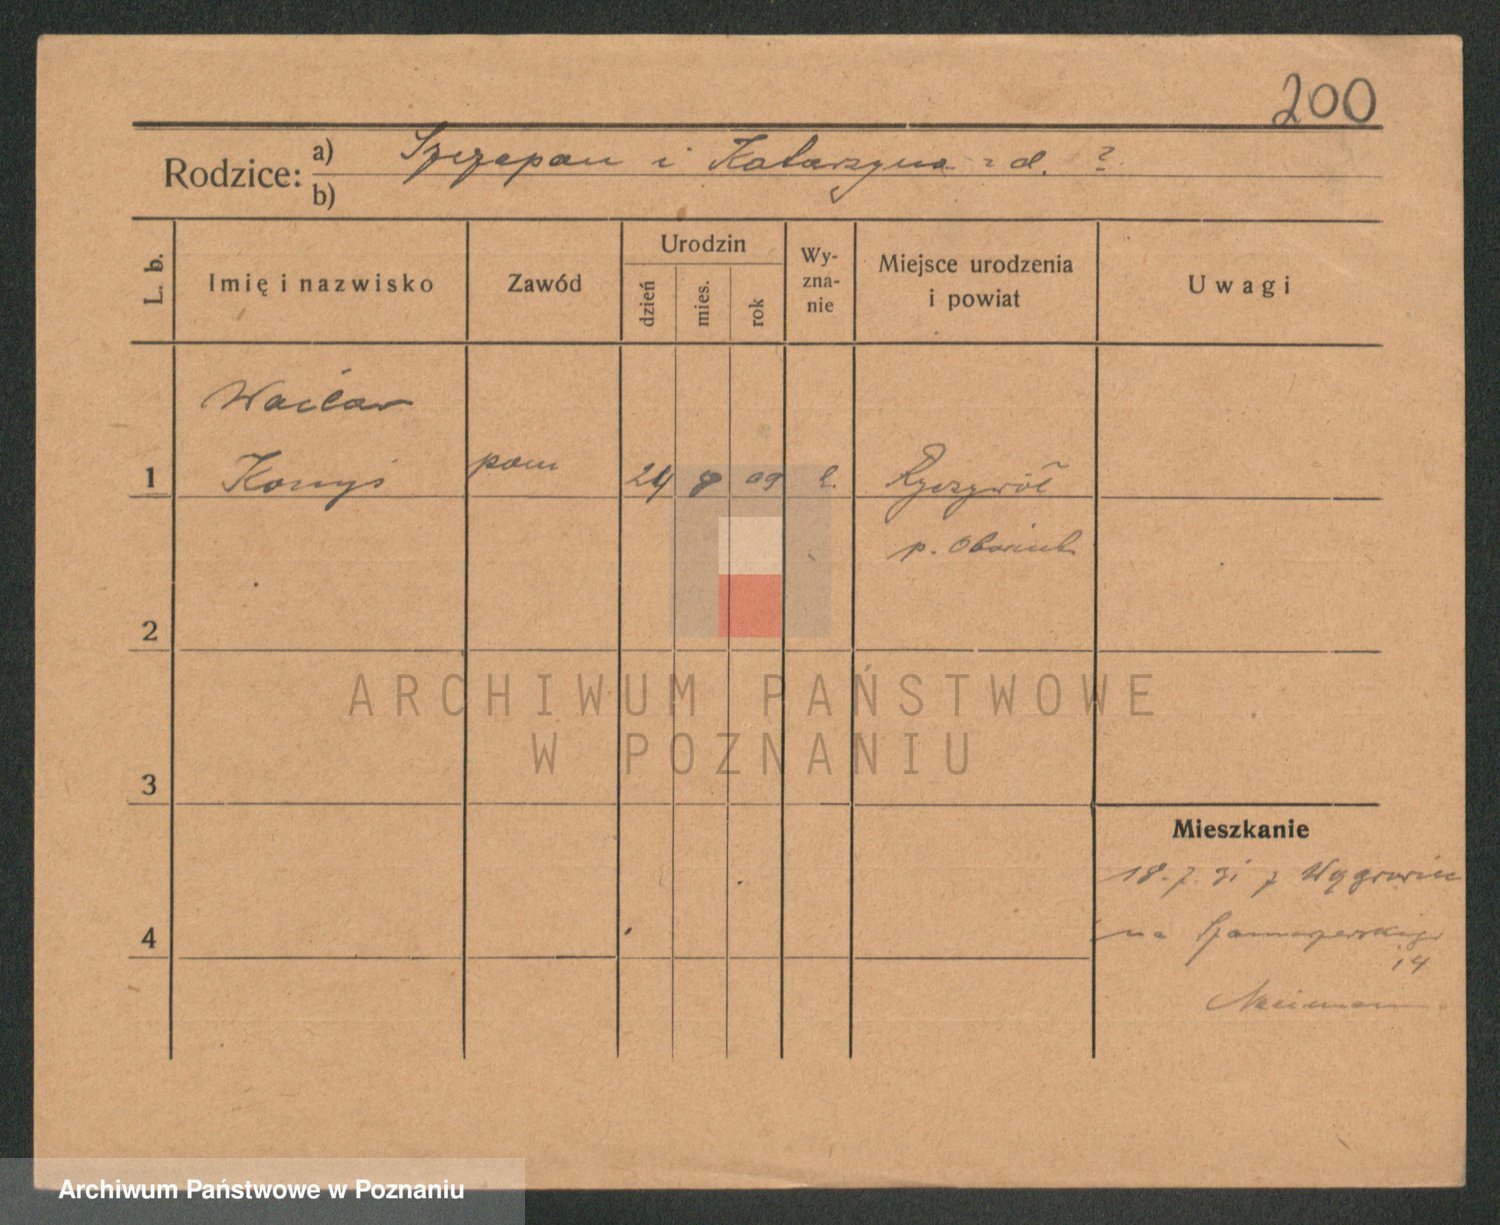 200
Rodzice: a) Szczepan i Katarzyna z d. ?
b)
L. b. Imię i nazwisko Zawód Urodzin Wy-
zna-
nie Miejsce urodzenia
i powiat Uwagi
dzień mies. rok
Wacław
1 Konyś pom 24 8 09 Ryczywół
p. Obornik
2
ARCHIWUM PAŃSTWOWE
W POZNANIU
3
Mieszkanie
18.7.31 z Wągrowiec
4 na Szamarzewskiego
14
Archiwum Państwowe w Poznaniu